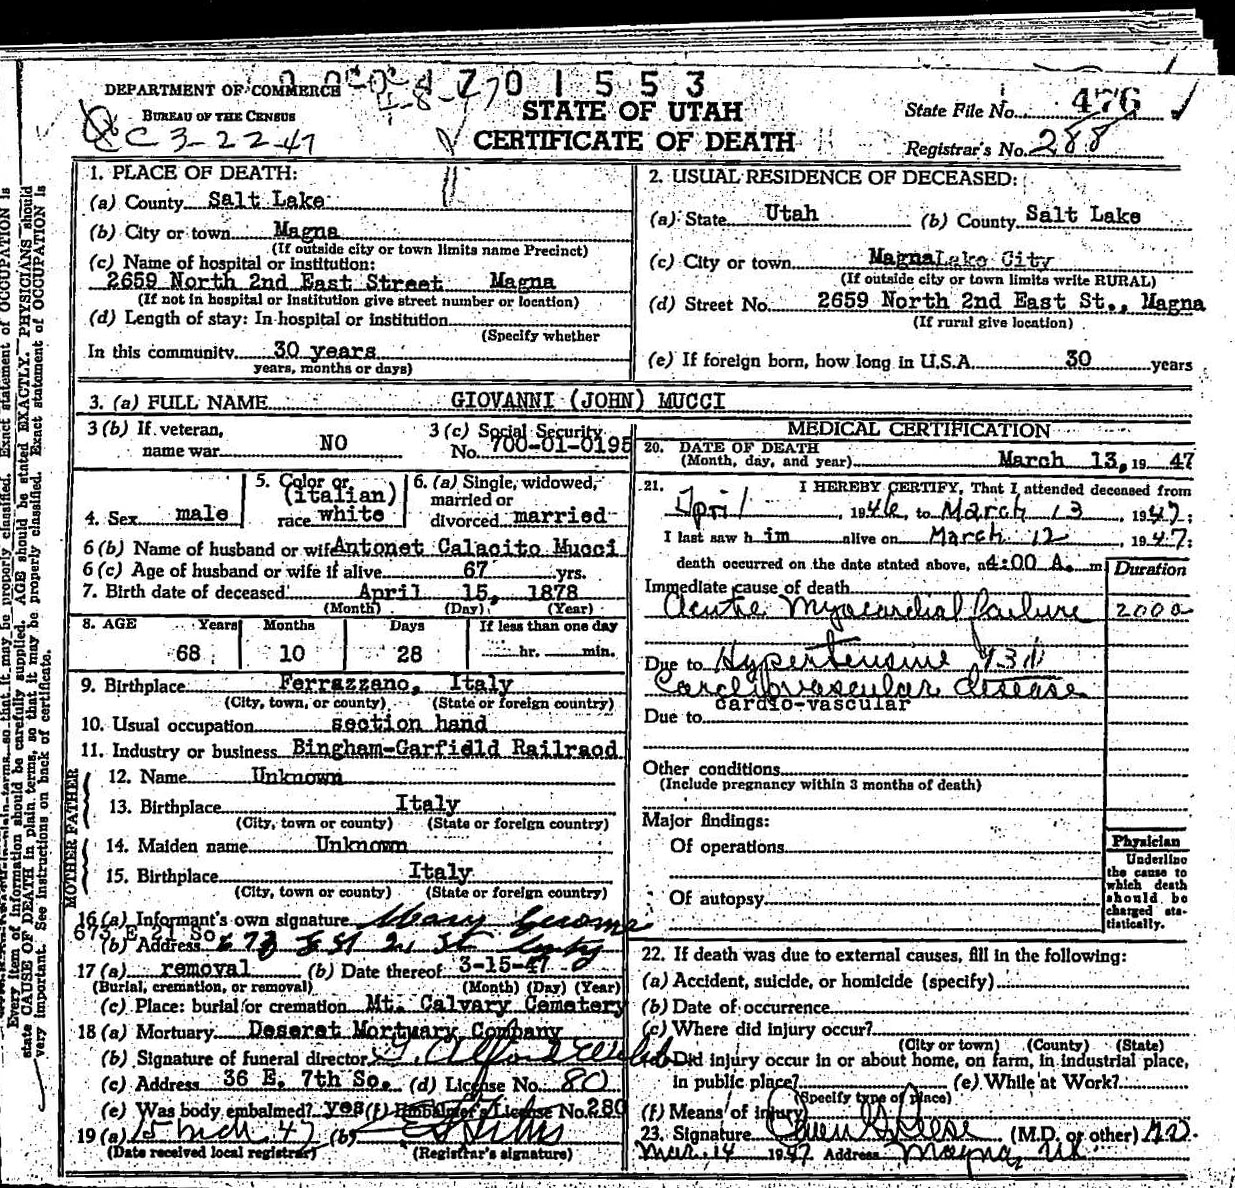 4701553
DEPARTMENT OF COMMERCE
BUREAU OF THE CENSUS
C 3-22-47
STATE OF UTAH
CERTIFICATE OF DEATH
State File No. 476
Registrar's No. 288
1. PLACE OF DEATH:
(a) County Salt Lake
(b) City or town Magna
(If outside city or town limits name Precinct)
(c) Name of hospital or institution:
2659 North 2nd East Street Magna
(If not in hospital or institution give street number or location)
(d) Length of stay: In hospital or institution
(Specify whether
In this community 30 years
years, months or days)
2. USUAL RESIDENCE OF DECEASED:
(a) State Utah (b) County Salt Lake
(c) City or town Magna Lake City
(If outside city or town limits write RURAL)
(d) Street No. 2659 North 2nd East St., Magna
(If rural give location)
(e) If foreign born, how long in U.S.A. 30 years
3. (a) FULL NAME GIOVANNI (JOHN) MUCCI
3 (b) If veteran, name war NO
3 (c) Social Security No. 700-01-0195
4. Sex male
5. Color or race (italian) white
6. (a) Single, widowed, married or divorced married
6 (b) Name of husband or wife Antonet Calacito Mucci
6 (c) Age of husband or wife if alive 67 yrs.
7. Birth date of deceased April 15, 1878
(Month) (Day) (Year)
8. AGE Years Months Days If less than one day
68 10 28 hr. min.
9. Birthplace Ferrazzano, Italy
(City, town, or county) (State or foreign country)
10. Usual occupation section hand
11. Industry or business Bingham-Garfield Railraod
FATHER
12. Name Unknown
13. Birthplace Italy
(City, town or county) (State or foreign country)
MOTHER
14. Maiden name Unknown
15. Birthplace Italy
(City, town or county) (State or foreign country)
16 (a) Informant's own signature Mary
673 E 21 So
(b) Address
17 (a) removal (b) Date thereof 3-15-47
(Burial, cremation, or removal) (Month) (Day) (Year)
(c) Place: burial or cremation Mt. Calvary Cemetery
18 (a) Mortuary Deseret Mortuary Company
(b) Signature of funeral director
(c) Address 36 E. 7th So. (d) License No. 80
(e) Was body embalmed? yes (f) Embalmer's License No. 280
19 (a) 15 Mch 47 (b)
(Date received local registrar) (Registrar's signature)
MEDICAL CERTIFICATION
20. DATE OF DEATH
(Month, day, and year) March 13, 1947
21. I HEREBY CERTIFY, That I attended deceased from
April, 1946, to March 13, 1947;
I last saw him alive on March 12, 1947;
death occurred on the date stated above, at 4:00 A. m
Duration
Immediate cause of death
Acute Myocardial failure
Due to Hypertensive
Cardiovascular disease
cardio-vascular
Due to
Other conditions
(Include pregnancy within 3 months of death)
Major findings:
Of operations
Of autopsy
Physician
Underline the cause to which death should be charged statistically.
22. If death was due to external causes, fill in the following:
(a) Accident, suicide, or homicide (specify)
(b) Date of occurrence
(c) Where did injury occur?
(City or town) (County) (State)
(d) Did injury occur in or about home, on farm, in industrial place,
in public place? (e) While at Work?
(Specify type of place)
(f) Means of injury
23. Signature (M.D. or other) M.D.
Mar. 14 1947 Address Magna, Ut.
Every item of information should be carefully supplied. AGE should be stated EXACTLY. PHYSICIANS should
state CAUSE OF DEATH in plain terms, so that it may be properly classified. Exact statement of OCCUPATION is
very important. See instructions on back of certificate.